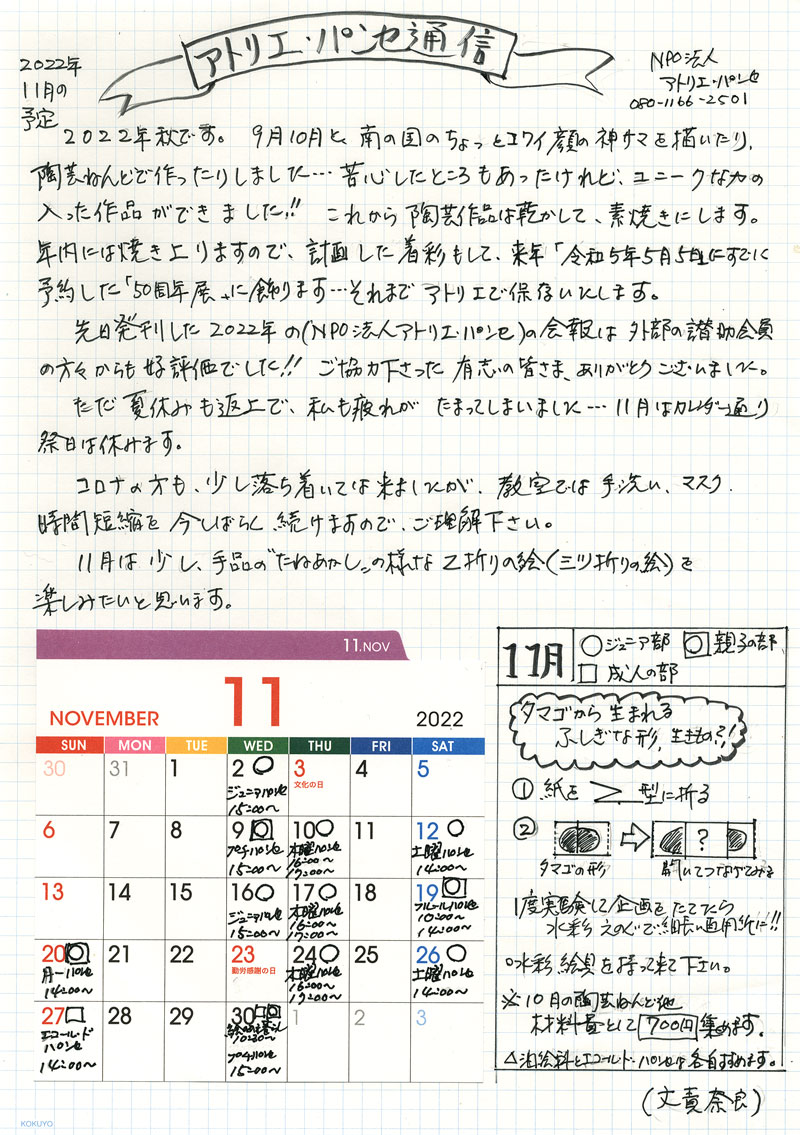 アトリエ・パンセ通信
2022年
11月の
予定
NPO法人
アトリエ・パンセ
080-1166-2501
2022年秋です。 9月10月と、南の国のちょっとコワイ顔の神サマを描いたり、
陶芸ねんどで作ったりしました… 苦心したところもあったけれど、ユニークな力の
入った作品ができました!! これから陶芸作品は乾かして、素焼きにします。
年内には焼き上りますので、計画した着彩もして、来年「令和5年5月5日」にすでに
予約した「50周年展」に飾ります…それまでアトリエで保存いたします。
先日発刊した2022年の(NPO法人アトリエ・パンセ)の会報は外部の讃助会員
の方々からも好評価でした!! ご協力下さった有志の皆さま、ありがとうございました。
ただ夏休みも返上で、私も疲れがたまってしまいました…11月はカレンダー通り
祭日は休みます。
コロナの方も、少し落ち着いては来ましたが、教室では手洗い、マスク、
時間短縮を今しばらく続けますので、ご理解下さい。
11月は少し、手品の"たねあかし"の様なZ折りの絵(三ツ折りの絵)を
楽しみたいと思います。
11.NOV
NOVEMBER 11 2022
SUN MON TUE WED THU FRI SAT
30 31 1 2 3 4 5
ジュニアパンセ
15:00〜
文化の日
6 7 8 9 10 11 12
プチパンセ
15:00〜
木曜パンセ
16:00〜
17:00〜
土曜パンセ
14:00〜
13 14 15 16 17 18 19
ジュニアパンセ
15:00〜
木曜パンセ
16:00〜
17:00〜
フルールパンセ
10:00〜
14:00〜
20 21 22 23 24 25 26
月一パンセ
14:00〜
勤労感謝の日
木曜パンセ
16:00〜
17:00〜
土曜パンセ
14:00〜
27 28 29 30 1 2 3
エコールド
パンセ
14:00〜
10:30〜
プチパンセ
15:00〜
11月
ジュニア部 親子の部
成人の部
タマゴから生まれる
ふしぎな形、生きもの?!
① 紙を 型に折る
②
?
タマゴの形 開いてつなげてみる
1度実験して企画をたてたら
水彩えのぐで細長い画用紙に!!
○水彩絵具を持って来て下さい。
※10月の陶芸ねんど他
材料費として 700円 集めます。
△油絵科とエコールド・パンセは各自すすめます。
(文責奈良)
KOKUYO